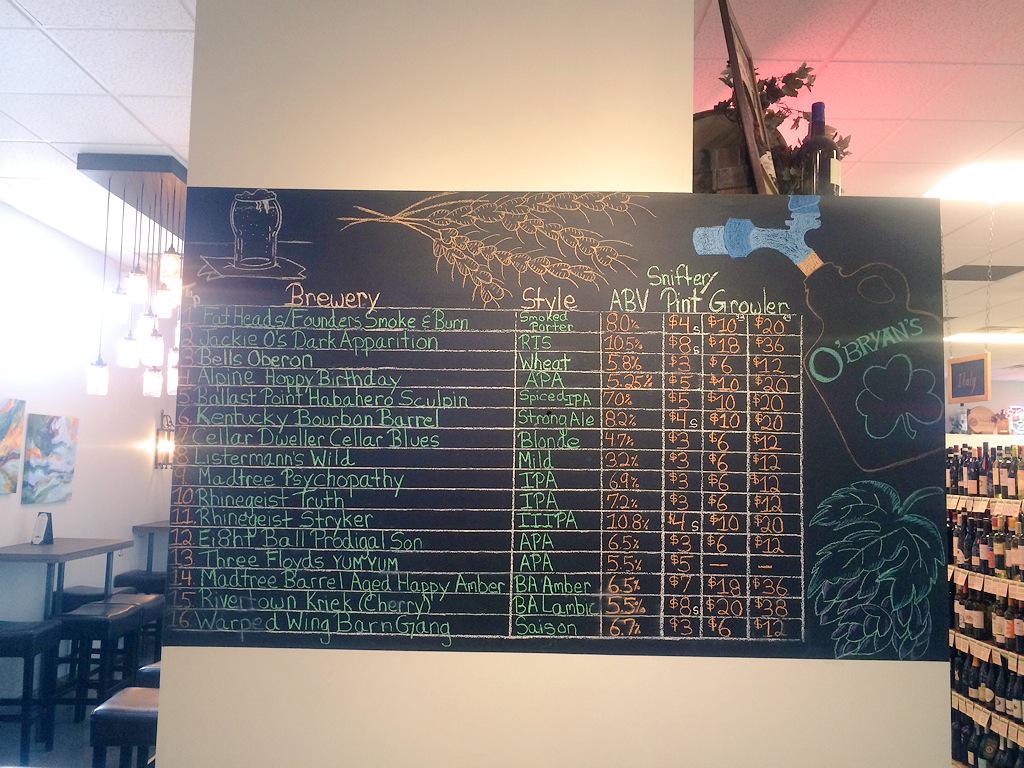 Sniftery
Brewery Style ABV Pint Growler
1 FatHeads/Founders Smoke & Burn Smoked Porter 8.0% $4s $10 $20
2 Jackie O's Dark Apparition RIS 10.5% $8s $18 $36
3 Bells Oberon Wheat 5.8% $3 $6 $12
Alpine Hoppy Birthday APA 5.25% $5 $10 $20
5 Ballast Point Habahero Sculpin Spiced IPA 7.0% $5 $10 $20
6 Kentucky Bourbon Barrel Strong Ale 8.2% $4s $10 $20
7 Cellar Dweller Cellar Blues Blonde 4.7% $3 $6 $12
8 Listermann's Wild Mild 3.2% $3 $6 $12
9 Madtree Psychopathy IPA 6.9% $3 $6 $12
10 Rhinegeist Truth IPA 7.2% $3 $6 $12
11. Rhinegeist Stryker IIIPA 10.8% $4s $10 $20
12 Ei8ht Ball Prodigal Son APA 6.5% $3 $6 $12
13 Three Floyds YUMYUM APA 5.5% $5 — —
14 Madtree Barrel Aged Happy Amber BA Amber 6.5% $7 $18 $36
15 Rivertown Kriek (Cherry) BA Lambic 5.5% $8s $20 $38
16 Warped Wing Barn Gang Saison 6.7% $3 $6 $12
O'BRYAN'S
Italy